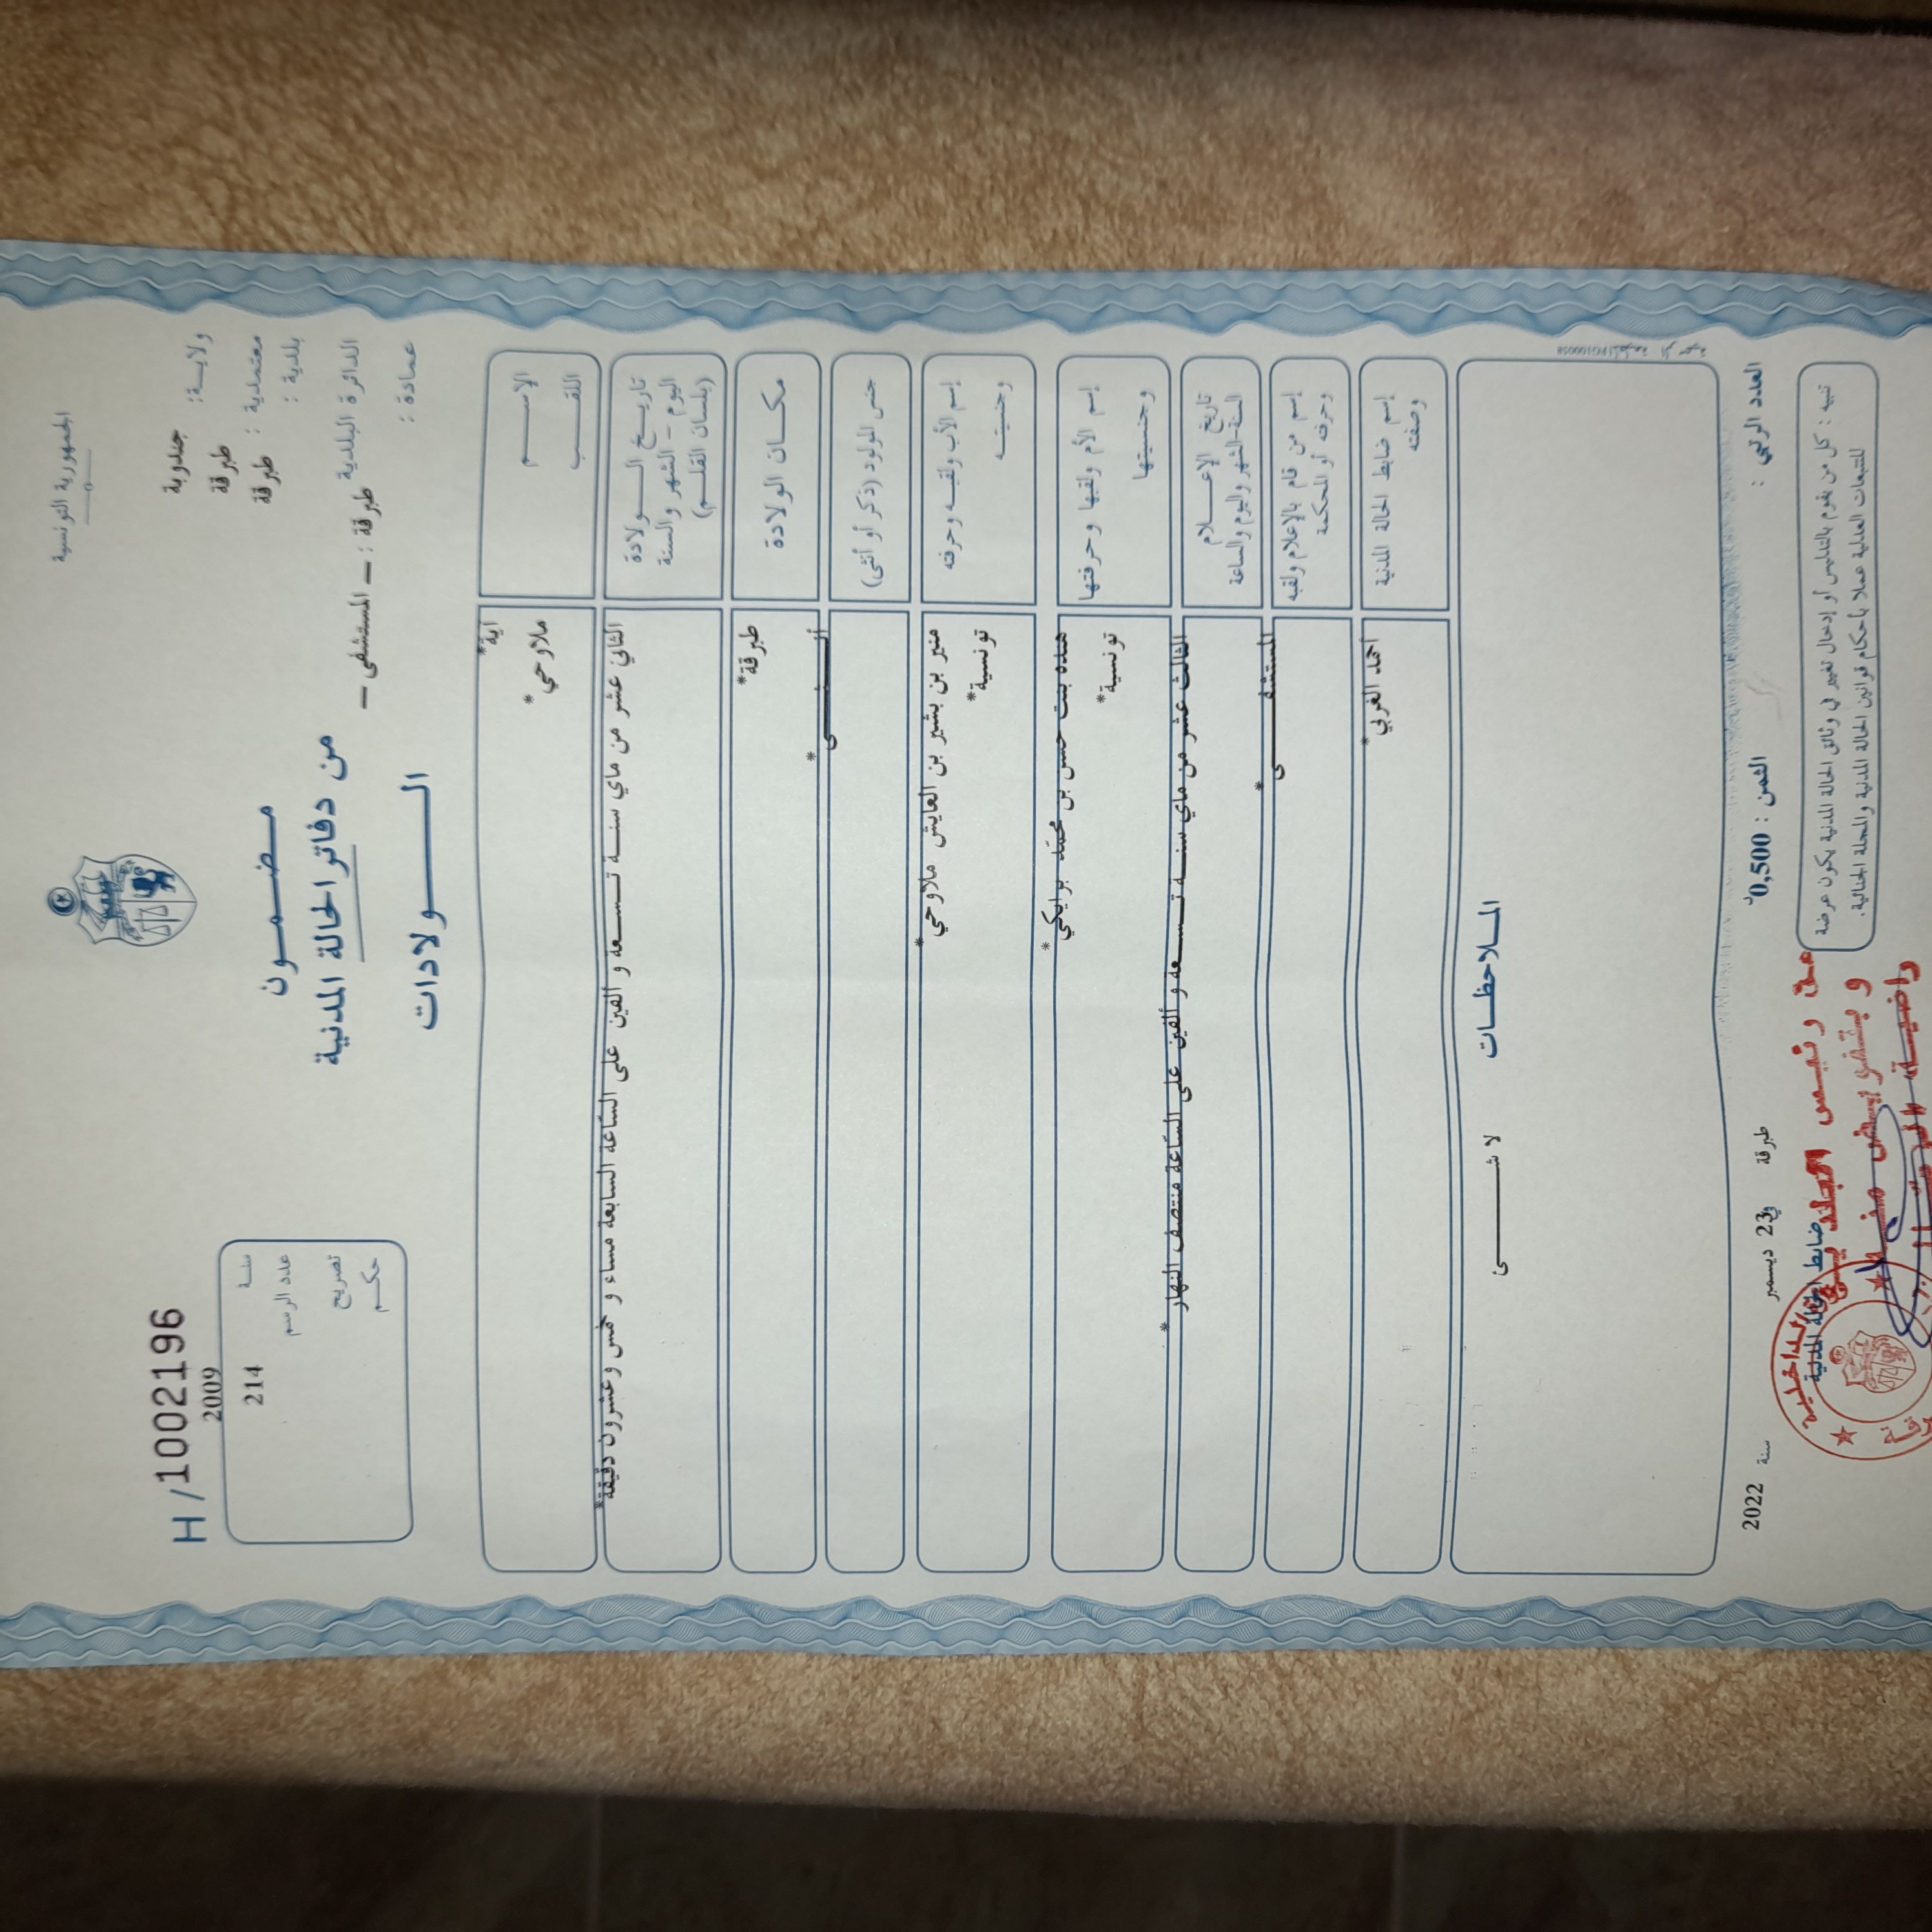 الجمهورية التونسية
H / 1002196
ولاية: جندوبة
معتمدية : طبرقة
بلدية : طبرقة
الدائرة البلدية طبرقة : - المستشفى -
عمادة :
سنة 2009
عدد الرسم 214
تصريح
حكم
مضمون
من دفاتر الحالة المدنية
الولادات
الاسم
اية*
اللقب
ملاوحي*
تاريخ الولادة
اليوم - الشهر والسنة
(بلسان القلم)
الثاني عشر من ماي سنة تسعة و الفين على الساعة السابعة مساء و خمس وعشرون دقيقة*
مكان الولادة
طبرقة*
جنس المولود (ذكر أو أنثى)
أنثى*
إسم الأب ولقبه وحرفته
وجنسيته
منير بن بشير بن العايش ملاوحي*
تونسية*
إسم الأم ولقبها وحرفتها
وجنسيتها
هنده بنت حسن بن محمد بوايكي*
تونسية*
تاريخ الإعلام
السنة-الشهر واليوم والساعة
الثالث عشر من ماي سنة تسعة و ألفين على الساعة منتصف النهار*
إسم من قام بالإعلام ولقبه
وحرفته أو المحكمة
المستشفى*
إسم ضابط الحالة المدنية
وصفته
احمد الغربي*
الملاحظات
لا شئ
العدد الرتبي :
الثمن : 0,500د
طبرقة في 23 ديسمبر سنة 2022
ضابط الحالة المدنية
تنبيه : كل من يقوم بالتدليس أو إدخال تغيير في وثائق الحالة المدنية يكون عرضة
للتتبعات العدلية عملا بأحكام قوانين الحالة المدنية والمجلة الجنائية.
عن رئيس البلدية
و بتفويض منه
راضية